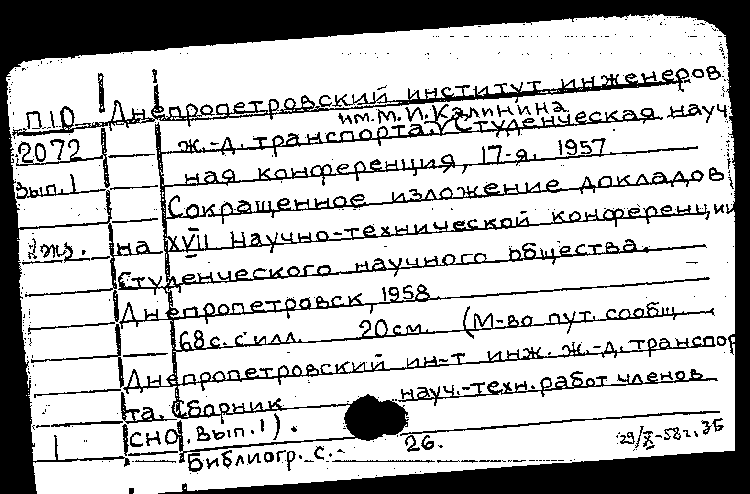 П10 Днепропетровский институт инженеров
им. М. И. Калинина
2072 ж.-д. транспорта. Студенческая науч-
ная конференция, 17-я. 1957.
Вып. 1
Сокращенное изложение докладов
на XVII Научно-технической конференции
Студенческого научного общества.
Днепропетровск, 1958.
68 с. с илл. 20 см. (М-во пут. сообщ.
Днепропетровский ин-т инж. ж.-д. транспор-
та. Сборник науч.-техн. работ членов
1 СНО. Вып. 1).
Библиогр. с. 26.
29/X-58 г. ЗБ